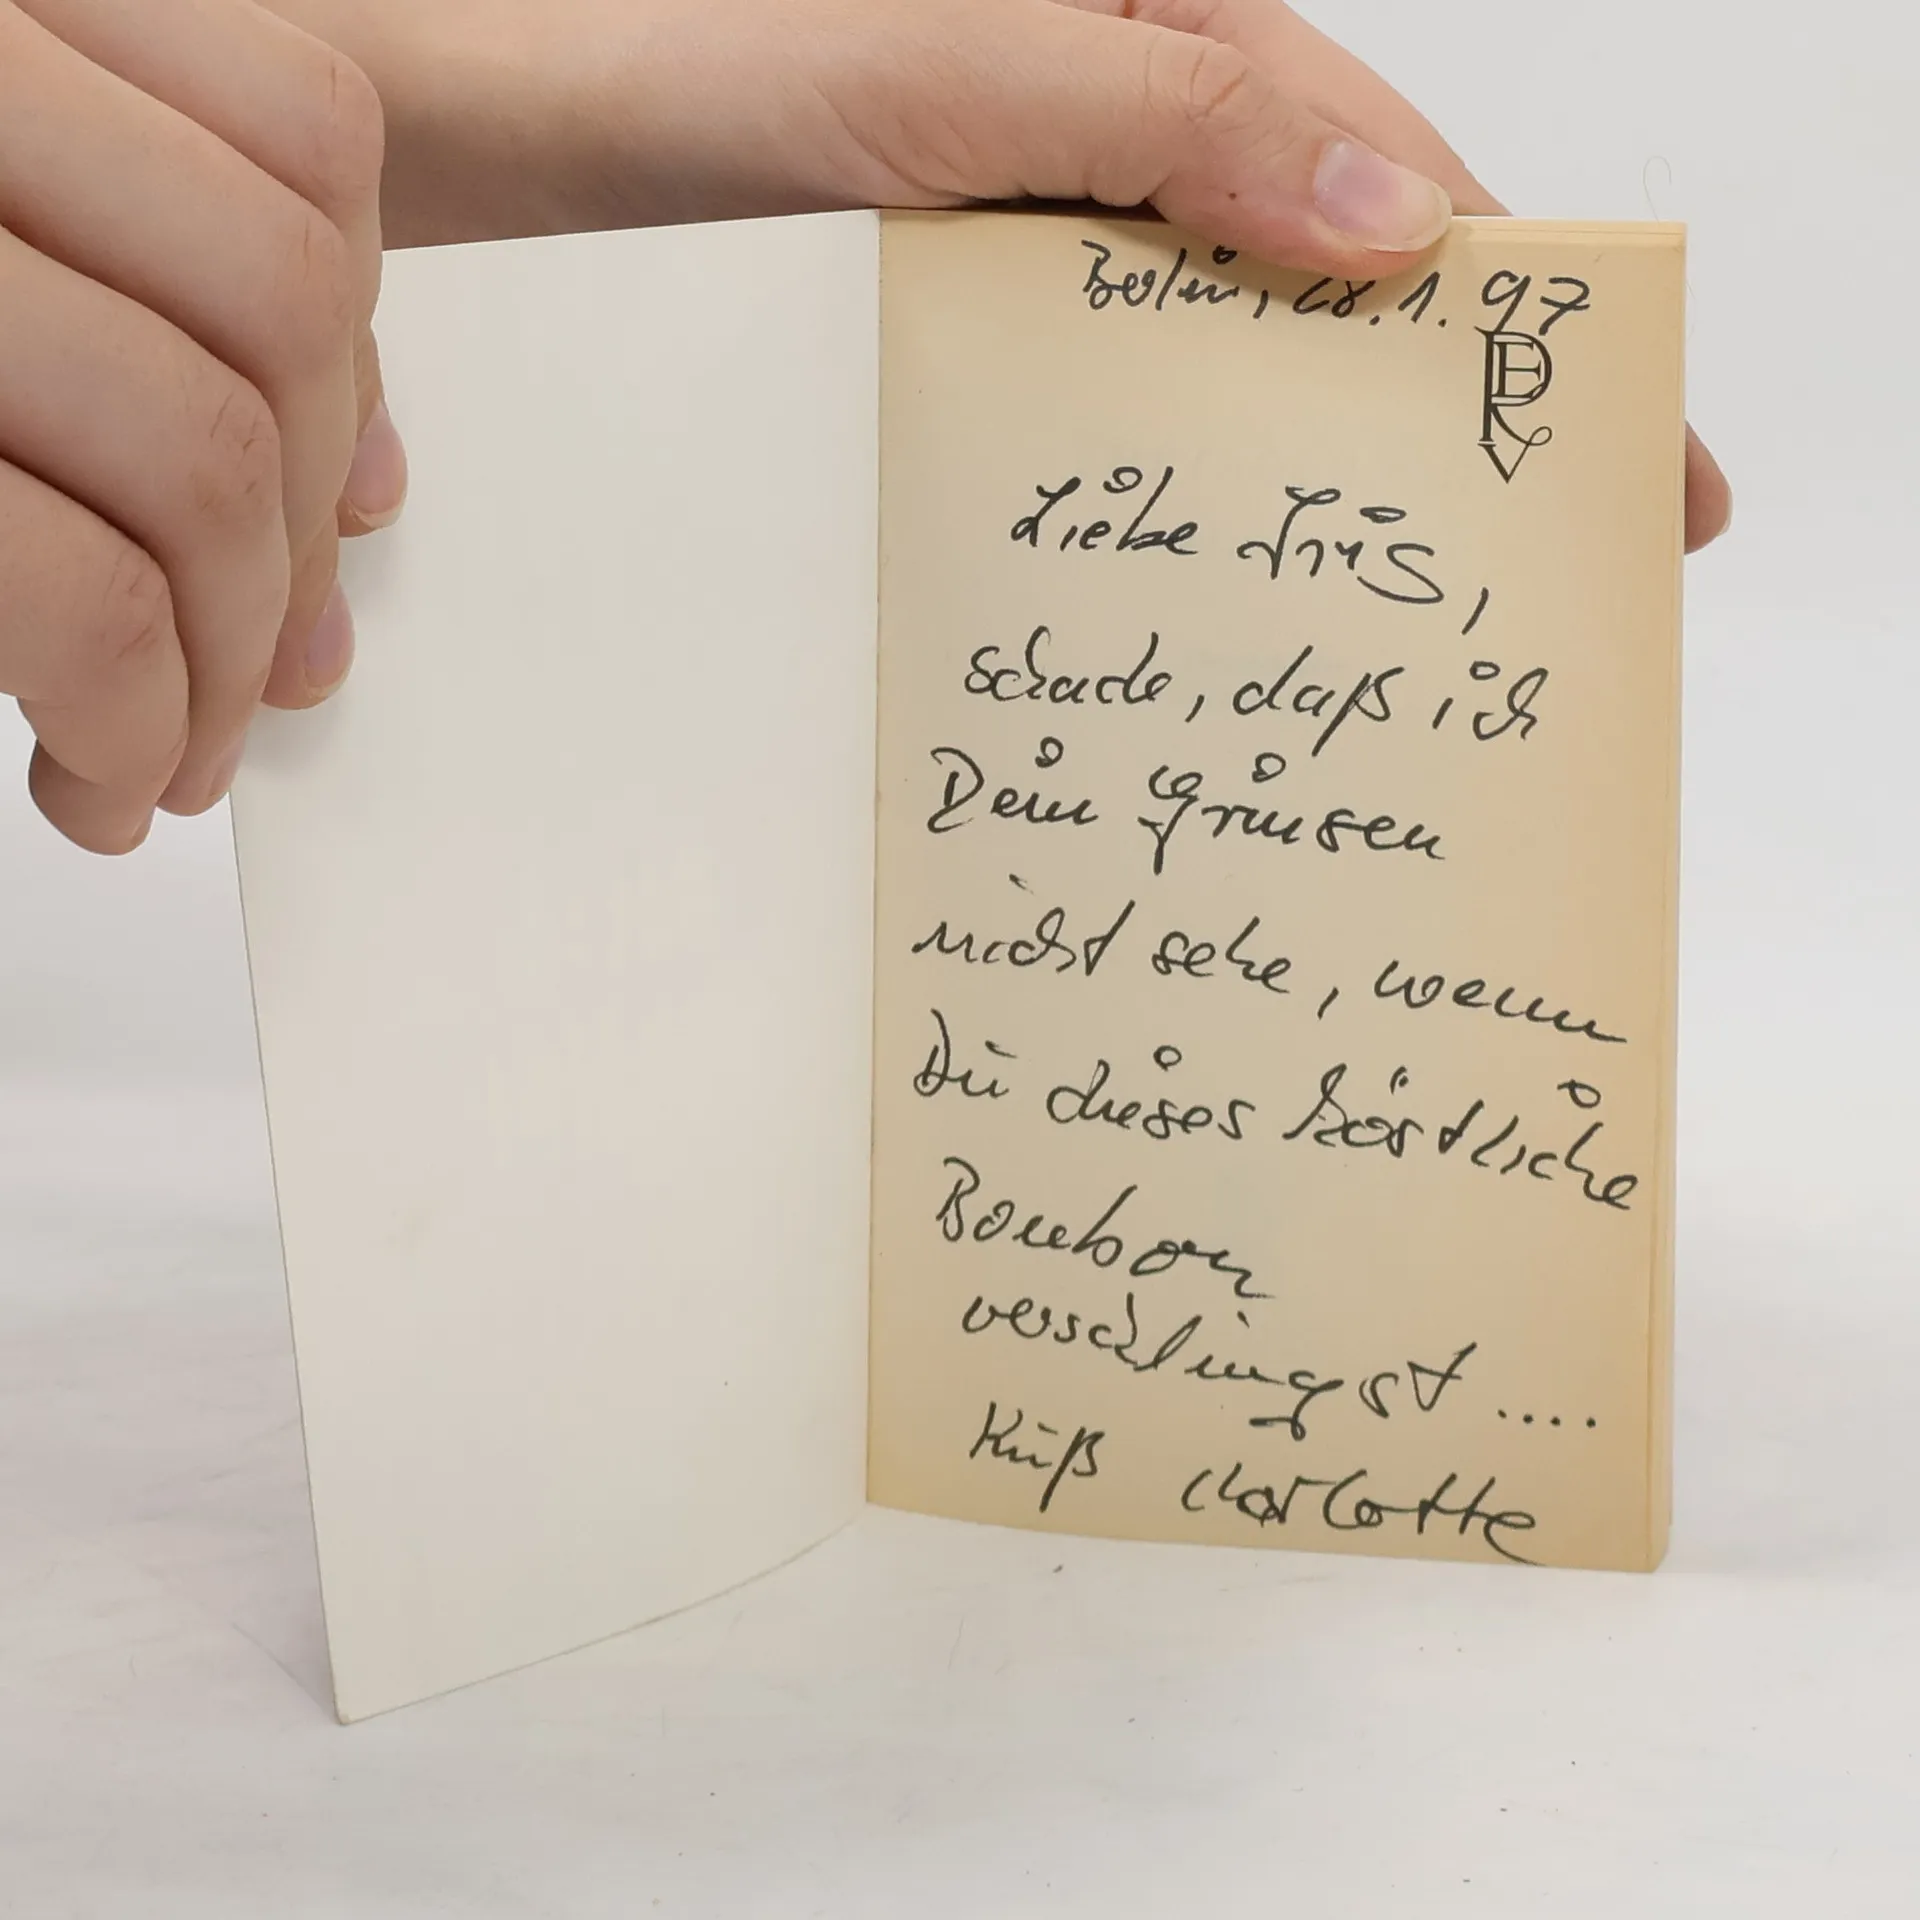 Berlin, 28.1.97
Liebe Iris,
schade, daß ich
Dein Grinsen
nicht sehe, wenn
Du dieses köstliche
Bonbon
verschlingst ....
Kuß Charlotte